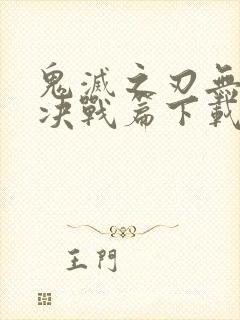 鬼滅之刃無
決戰篇下載
王門